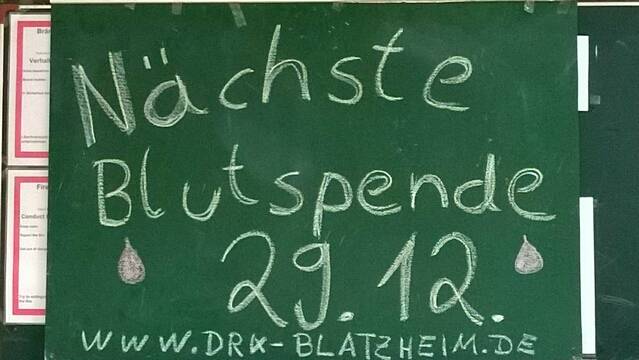 Nächste
Blutspende
29.12.
WWW.DRK-BLATZHEIM.DE
Conduct